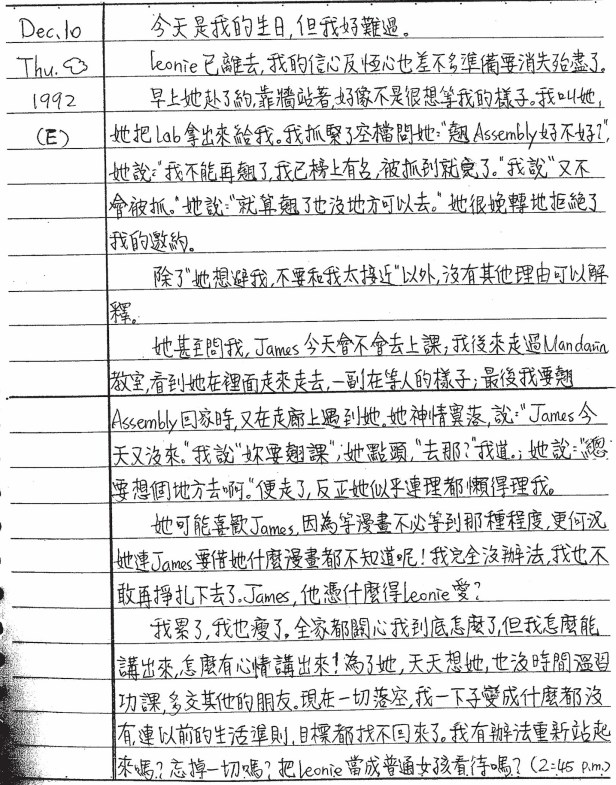 Dec.10 今天是我的生日,但我好難過。
Thu. Leonie已離去,我的信心及恆心也差不多準備要消失殆盡了。
1992 早上她赴了約,靠牆站著,好像不是很想等我的樣子。我叫她,
(E) 她把lab拿出來給我。我抓緊了空檔問她:"翹Assembly好不好?",
她說:"我不能再翹了,我已榜上有名,被抓到就完了。"我說"又不
會被抓。"她說:"就算翹了也沒地方可以去。"她很婉轉地拒絕了
我的邀約。
除了"她想避我,不要和我太接近"以外,沒有其他理由可以解
釋。
她甚至問我,James今天會不會去上課;我後來走過Mandarin
教室,看到她在裡面走來走去,一副在等人的樣子;最後我要翹
Assembly回家時,又在走廊上遇到她。她神情寞落,說:"James今
天又沒來。"我說"妳要翹課";她點頭,"去那?"我道。;她說:"總
要想個地方去啊。"便走了,反正她似乎連理都懶得理我。
她可能喜歡James,因為等漫畫不必等到那種程度,更何況
她連James要借她什麼漫畫都不知道呢!我完全沒辦法,我也不
敢再掙扎下去了.James,他憑什麼得Leonie愛?
我累了,我也瘦了。全家都關心我到底怎麼了,但我怎麼能
講出來,怎麼有心情講出來!為了她,天天想她,也沒時間溫習
功課,多交其他的朋友。現在一切落空,我一下子變成什麼都沒
有,連以前的生活準則,目標都找不回來了。我有辦法重新站起
來嗎?忘掉一切嗎?把Leonie當成普通女孩看待嗎?(2:45 p.m.)